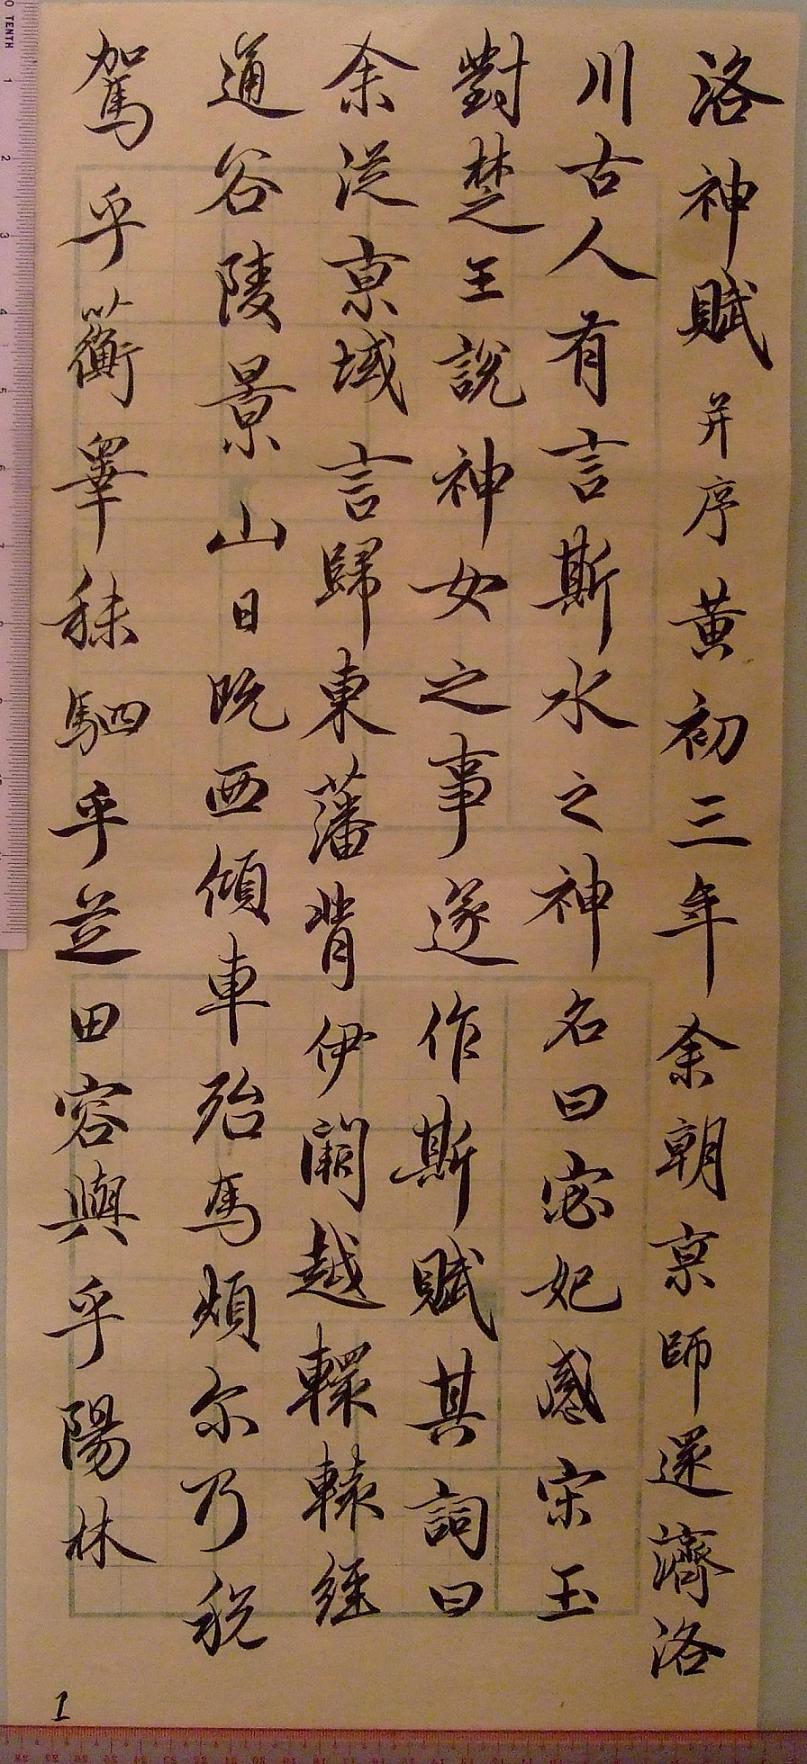 洛神賦并序黃初三年余朝京師還濟洛
川古人有言斯水之神名曰宓妃感宋玉
對楚王說神女之事遂作斯賦其詞曰
余從京域言歸東藩背伊闕越轘轅經
通谷陵景山日既西傾車殆馬煩尔乃稅
駕乎蘅睪秣駟乎芝田容與乎陽林
1